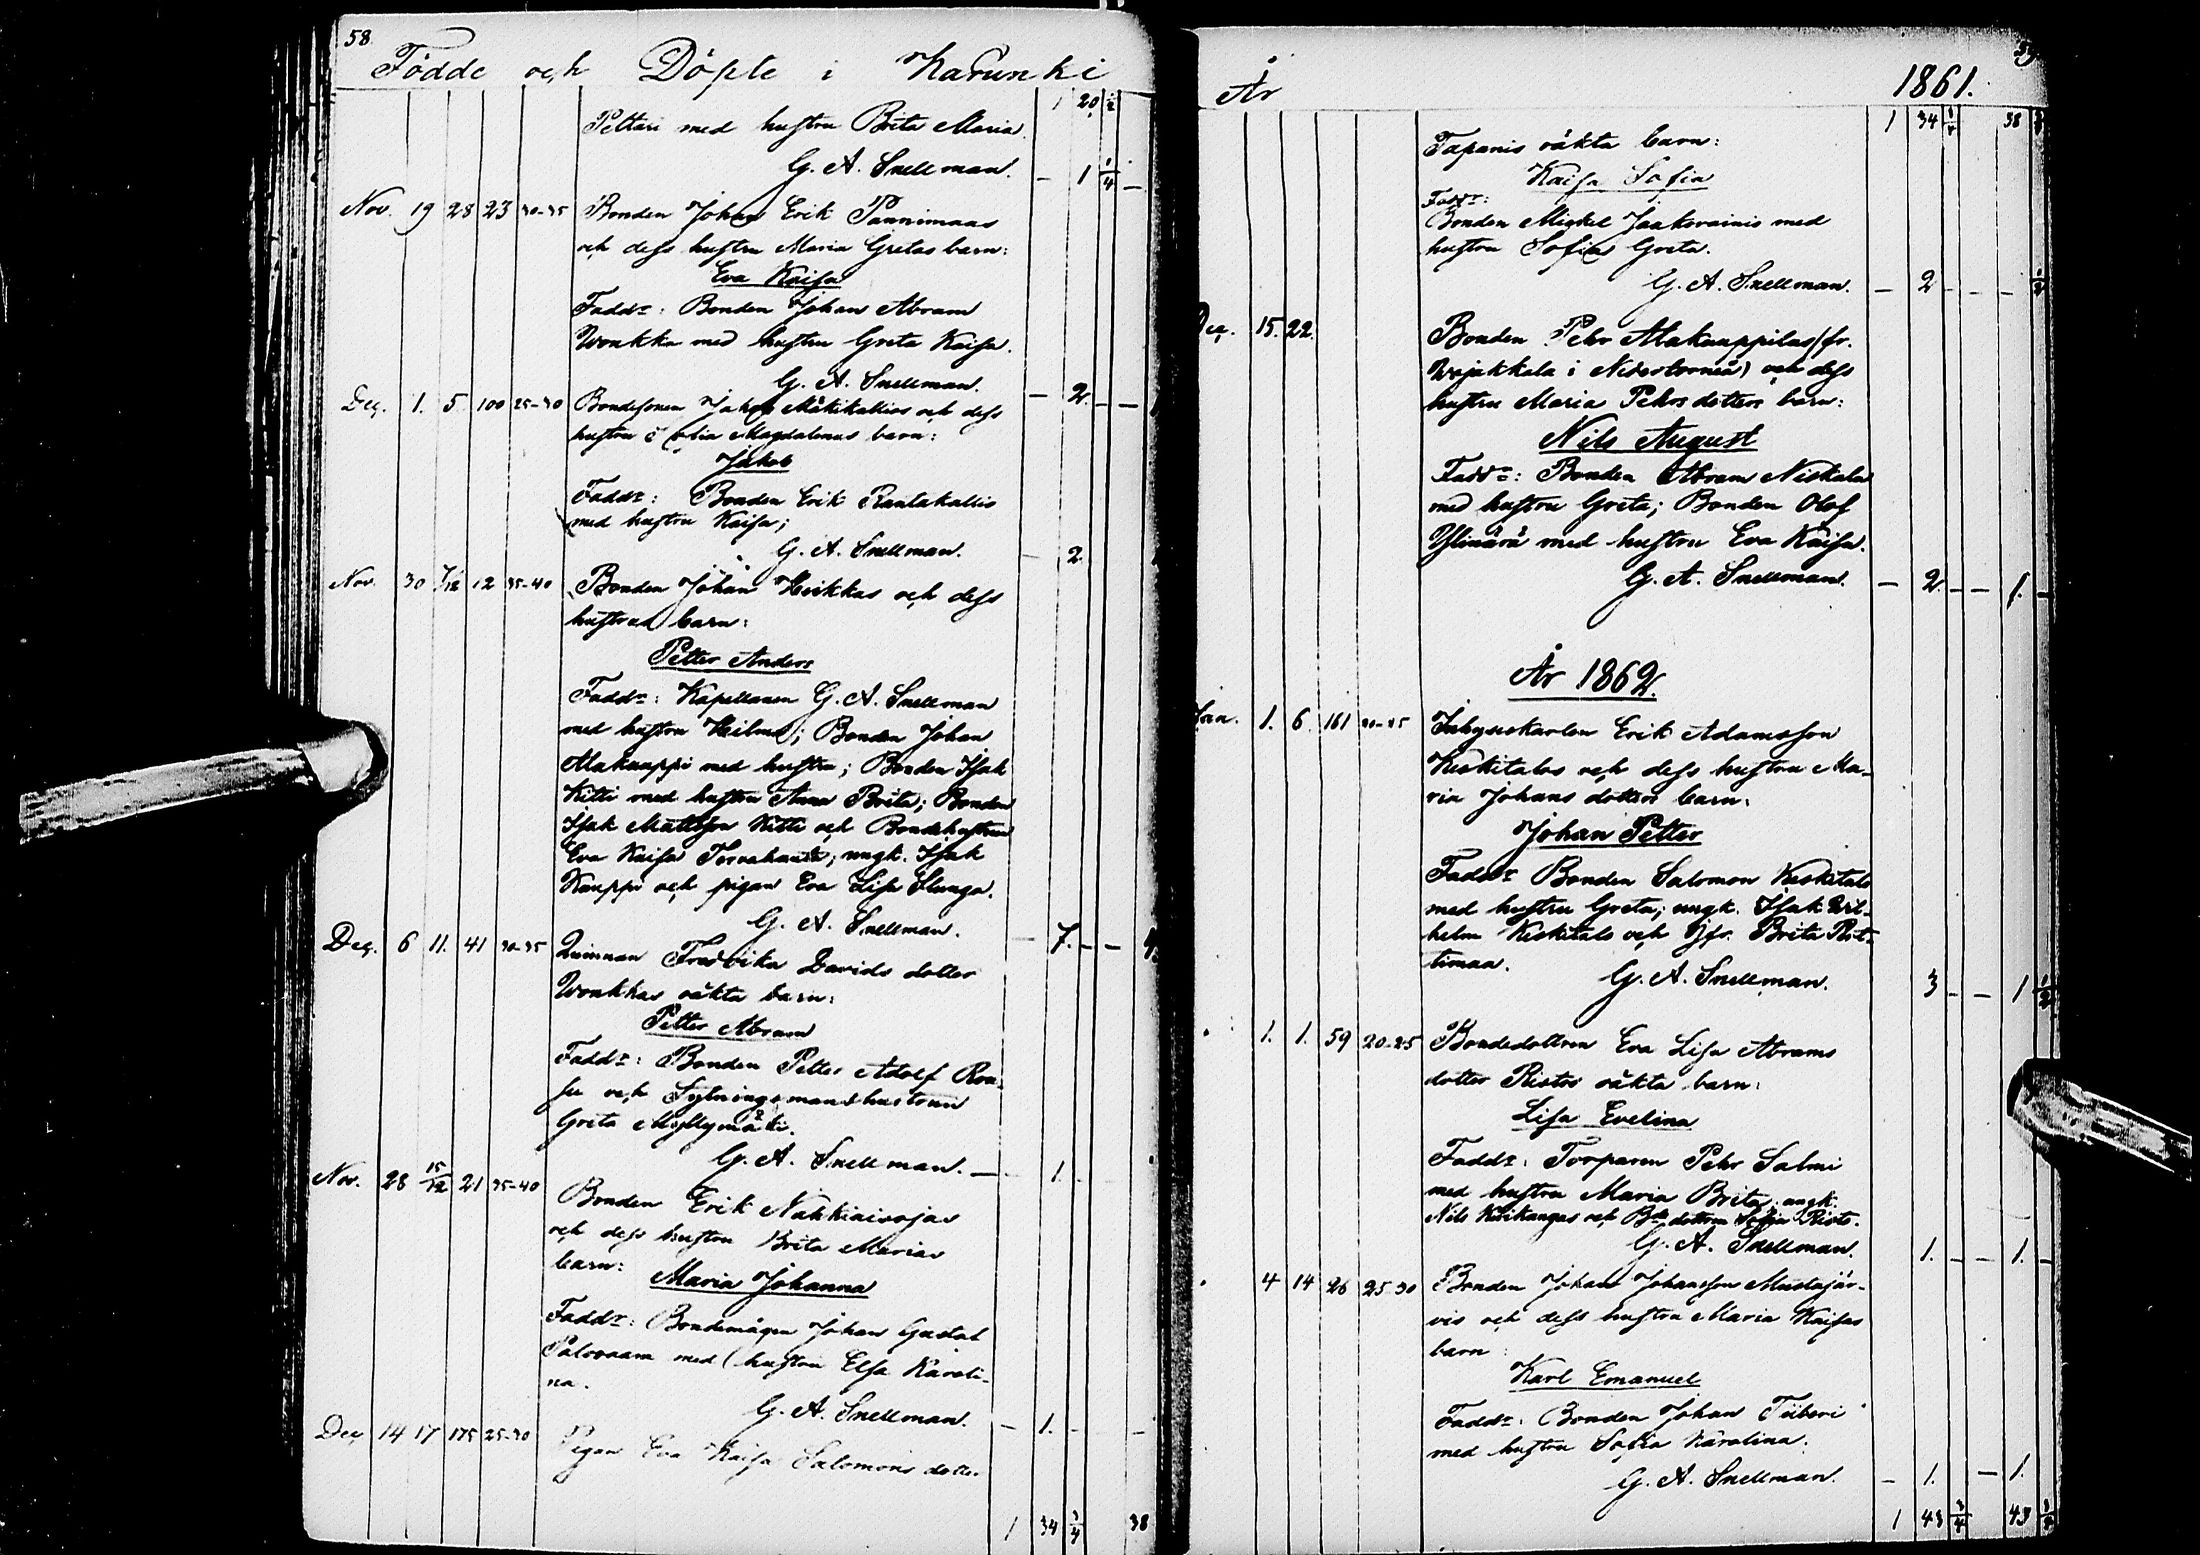 58
Födde och Döpte i Karunki
1 20 1/2
Pettari med hustru Brita Maria.
G. A. Snellman. — 1 1/4 —
Nov. 19 28 23 30-35 Bonden Johan Erik Pannimaas
och dess hustru Maria Gretas barn:
Eva Kaisa
Faddr: Bonden Johan Abram
Wonkka med hustru Greta Kaisa.
G. A. Snellman. — 2. — —
Dec. 1. 5. 100 25-30 Bondesonen Jakob Mäkikallios och dess
hustru Sofia Magdalenas barn:
Jakob
Faddr: Bonden Erik Rantakallio
med hustru Kaisa;
G. A. Snellman. — 2.
Nov. 30 7/12 12 35-40 Bonden Johan Heikkas och dess
hustrus barn:
Petter Anders
Faddr: Kapellanen G. A. Snellman
med hustru Hilma; Bonden Johan
Alakauppi med hustru; Bonden Isak
Kitti med hustru Anna Brita; Bonden
Isak Mattsson Kitti och Bondehustrun
Eva Kaisa; ungk. Isak
Kauppi och pigan Eva Lisa Slunga.
G. A. Snellman. — 7. — —
Dec. 6 11. 41 30-35 Qvinnan Fredrika Davids dotter
Wonkkas oäkta barn:
Petter Abram
Faddr: Bonden Petter Adolf Rou-
su och Sytningsmanshustrun
Greta Myllymäki.
G. A. Snellman. — 1.
Nov. 28 15/12 21 35-40 Bonden Erik Nahkiaisojas
och dess hustru Brita Marias
barn:
Maria Johanna
Faddr: Bondemågen Johan Gustaf
Palovaara med hustru Elsa Karoli-
na.
G. A. Snellman. — 1. —
Dec 14 17 175 25-30 Pigan Eva Kaisa Salomons dotter
1 34 3/4 38
År 1861.
59
1 34 3/4 38
Tapanis oäkta barn:
Kaisa Sofia
Faddr:
Bonden Mickel Jaakovainis med
hustru Sofia Greta.
G. A. Snellman. — 2 — — — 1/2
Dec. 15. 22. Bonden Pehr Alakauppilas (fr.
Wojakkala i Nedertorneå) och dess
hustru Maria Pehrsdotters barn:
Nils August
Faddr: Bonden Abram Niskala
med hustru Greta; Bonden Olof
Ylinärä med hustru Eva Kaisa.
G. A. Snellman. — 2. — — 1. —
År 1862.
Jan. 1. 6. 161 Inhyseskarlen Erik Adamsson
Keskitalos och dess hustru Ma-
ria Johans dotters barn:
Johan Petter
Faddr Bonden Salomon Keskitalo
med hustru Greta; ungk. Isak Wil-
helm Keskitalo och Jfr. Brita Rot-
timaa.
G. A. Snellman. 3 — — 1 1/2
1. 1. 59 20-25 Bondedottern Eva Lisa Abrams
dotter Ristos oäkta barn:
Lisa Evelina
Faddr: Torparen Pehr Salmi
med hustru Maria Brita, ungk.
Nils Kuikangas och Bdedottern Sofia Risto.
G. A. Snellman. 1. — — 1. —
4 14 26 25-30 Bonden Johan Johansson Mustajär-
vis och dess hustru Maria Kaisas
barn:
Karl Emanuel
Faddr: Bonden Johan Tiiberi
med hustru Sofia Karolina.
G. A. Snellman. — 1. — 1.
1 43 3/4 43 3/4